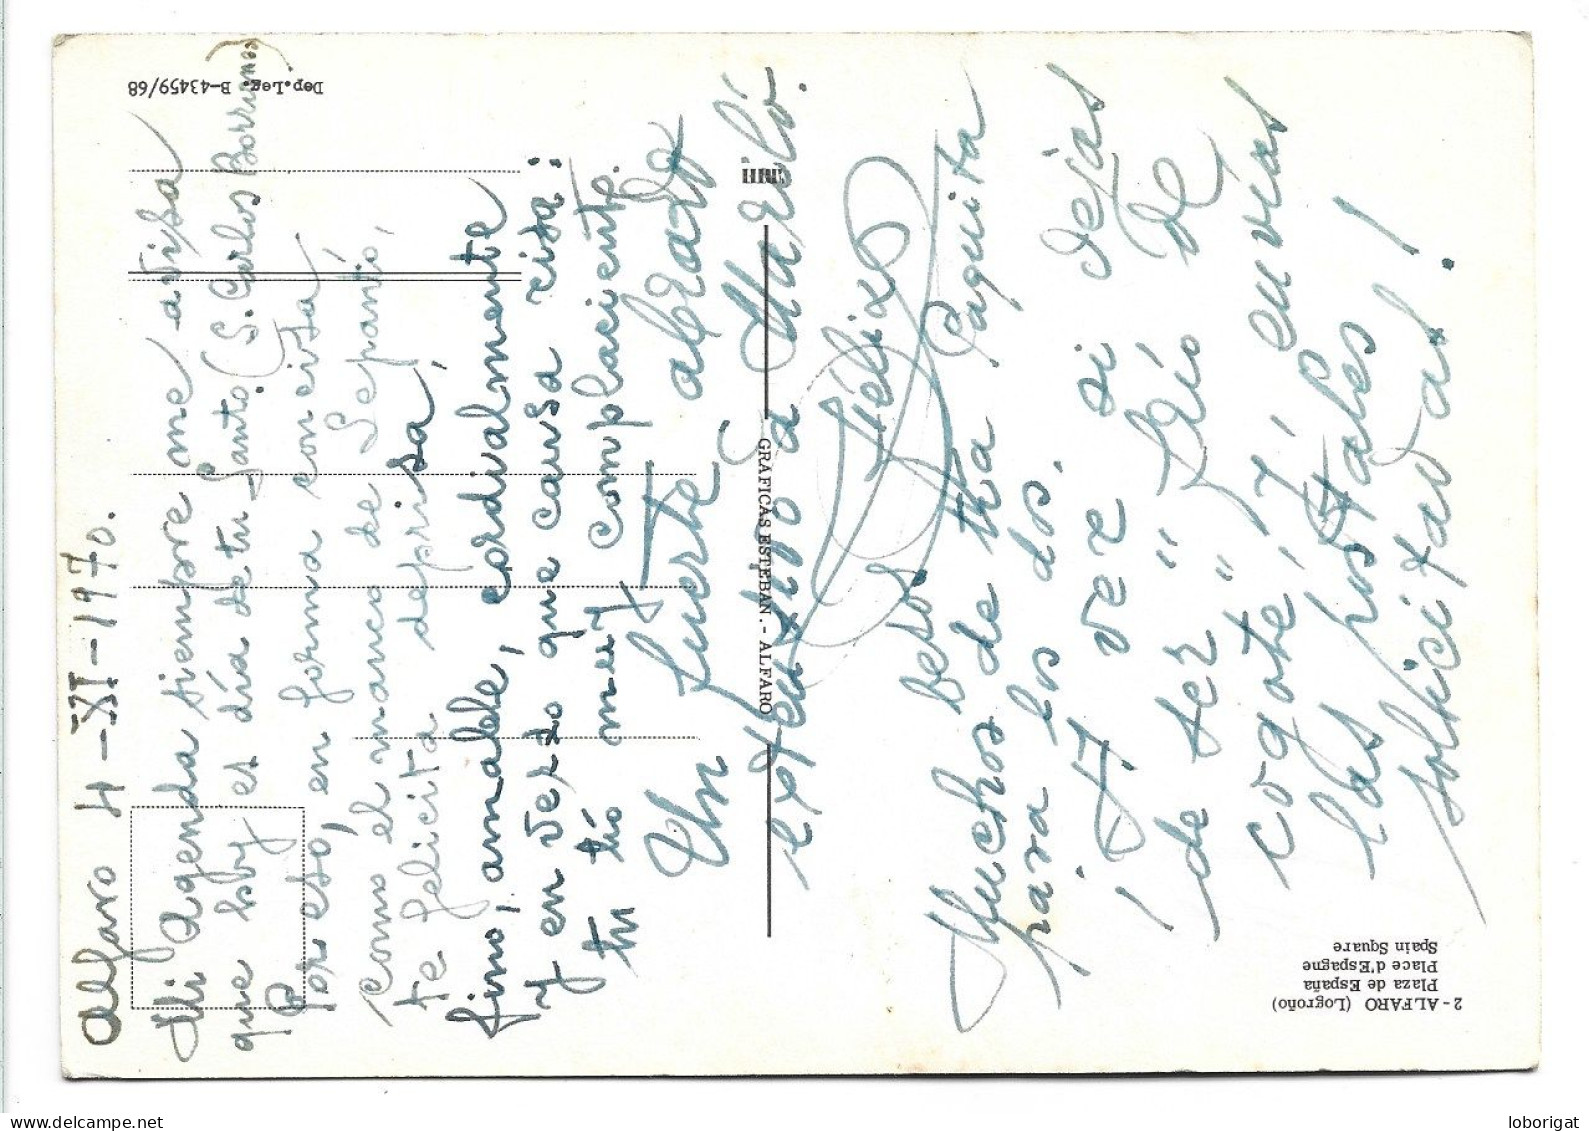 Alfaro 4-XI-1970.
Mi agenda siempre me avisa
que hoy es día de tu Santo (S. Carlos Borromeo)
Por eso, en forma concisa
como el manco de Lepanto,
te felicita deprisa,
fino, amable, cordialmente
y en verso que causa risa:
tu tío muy complaciente.
Un fuerte abrazo
extensivo a Marilo.
Félix
Muchos besos de tía Paquita
para los dos.
¡A ver si dejas
de ser "frío de
cogote", y envías
las postales
solicitadas!
2 - ALFARO (Logroño)
Plaza de España
Place d'Espagne
Spain Square
GRAFICAS ESTEBAN. - ALFARO
Dep. Leg. B-43459/68
loborigat